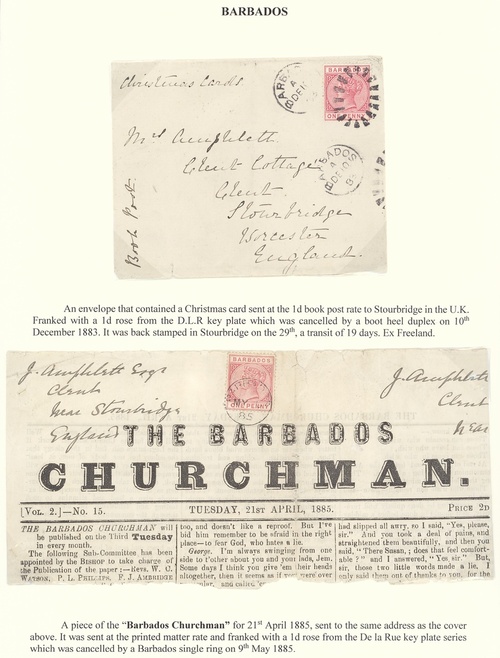 BARBADOS
Christmas Cards
BARBADOS
A
DE 10
BARBADOS
ONE PENNY
BARBADOS
A
DE 10
Mrs Amphlett
Clent Cottage
Clent
Stourbridge
Worcester
England.
Book Post.
An envelope that contained a Christmas card sent at the 1d book post rate to Stourbridge in the U.K.
Franked with a 1d rose from the D.L.R key plate which was cancelled by a boot heel duplex on 10th
December 1883. It was back stamped in Stourbridge on the 29th, a transit of 19 days. Ex Freeland.
J. Amphlett Esqr
Clent
Near Stourbridge
England
BARBADOS
ONE PENNY
MY
85
J. Amphlett
Clent
Near
THE BARBADOS
CHURCHMAN.
[VOL. 2.]—No. 15.
TUESDAY, 21ST APRIL, 1885.
PRICE 2D
THE BARBADOS CHURCHMAN will
be published on the Third Tuesday
in every month.
The following Sub-Committee has been
appointed by the Bishop to take charge of
the Publication of the paper:—Revs. W. C.
WATSON, P. L. PHILLIPS, F. J. AMBRIDGE
too, and doesn't like a reproof. But I've
bid him remember to be afraid in the right
place—to fear God, who hates a lie.
George. I'm always swinging from one
side to t'other about you and your lads, Jem.
Some days I think you give 'em their heads
altogether, then it seems as if you were over
and called
had slipped all awry, so I said, "Yes, please,
sir." And you took a deal of pains, and
straightened them beautifully, and then you
said, "There Susan,; does that feel comfort-
able?" and I answered, "Yes Sir." But,
sir, those two little words made a lie. I
only said them out of thanks to you, for the
A piece of the "Barbados Churchman" for 21st April 1885, sent to the same address as the cover
above. It was sent at the printed matter rate and franked with a 1d rose from the De la Rue key plate series
which was cancelled by a Barbados single ring on 9th May 1885.